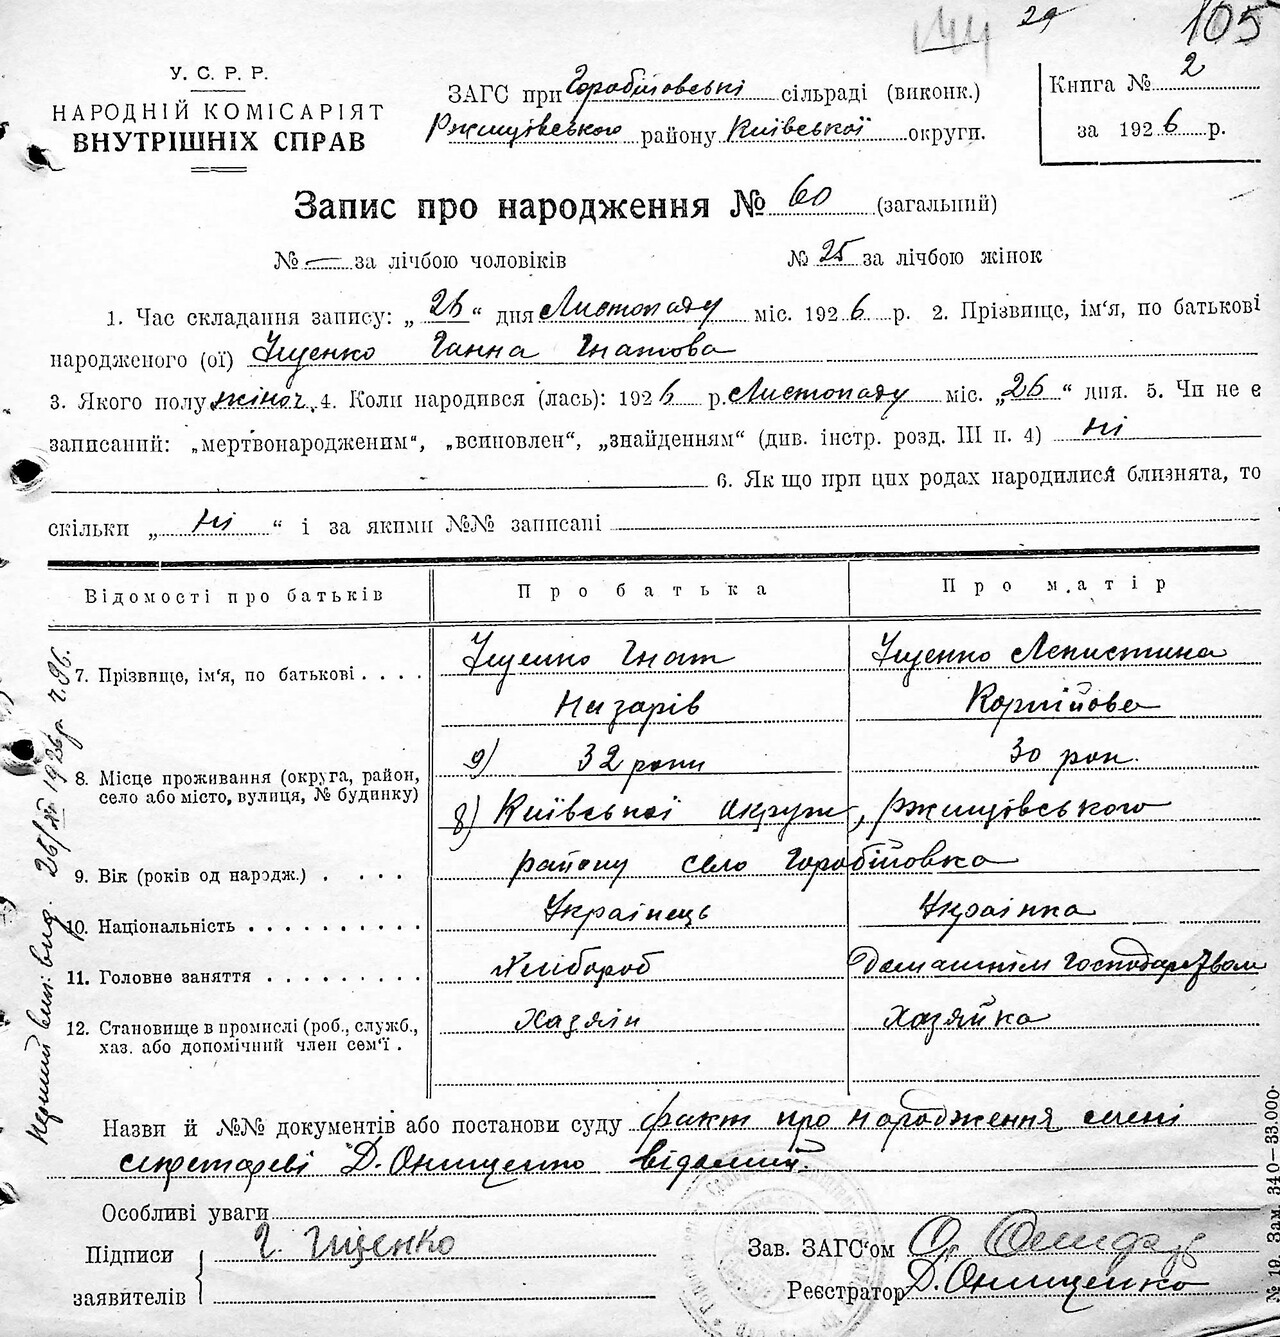 144 29 105
У. С. Р. Р.
НАРОДНІЙ КОМІСАРІЯТ
ВНУТРІШНІХ СПРАВ
ЗАГС при Горобіївські сільраді (виконк.)
Ржищівського району Київської округи.
Книга № 2
за 1926 р.
Запис про народження № 60 (загальний)
№ — за лічбою чоловіків № 25 за лічбою жінок
1. Час складання запису: „ 26 “ дня Листопаду міс. 1926 р. 2. Прізвище, ім‘я, по батькові
народженого (ої) Іщенко Ганна Гнатова
3. Якого полу жіноч. 4. Коли народився (лась): 1926 р. Листопаду міс. „26“ дня. 5. Чи не є
записаний: „мертвонародженим“, „всиновлен“, „знайденям“ (див. інстр. розд. III п. 4) ні
6. Як що при цих родах народилися близнята, то
скільки „ ні “ і за якими №№ записані
Відомості про батьків Про батька Про матір
7. Прізвище, ім‘я, по батькові . . . . Іщенко Гнат Іщенко Лепистина
Назарів Корнійова
9) 32 роки 30 рок.
8. Місце проживання (округа, район,
село або місто, вулиця, № будинку)
8) Київської округи, Ржищівського
району село Горобіївка
9. Вік (років од народж.) . . . .
10. Національність . . . . . . . . . . Українець Українка
11. Головне заняття . . . . . . . . . Хлібороб Домашнім господарством
12. Становище в промислі (роб., служб., Хазяін Хазяйка
хаз. або допомічний член сем‘ї .
Назви й №№ документів або постанови суду факт про народження мені
секретареві Д. Онищенко відомий.
Особливі уваги
Підписи Г. Іщенко
заявителів
Зав. ЗАГС‘ом
Реєстратор Д. Онищенко
вид. 26/XI 1926 р. ч. 96.
№ 19. Зам. 340—33.000.